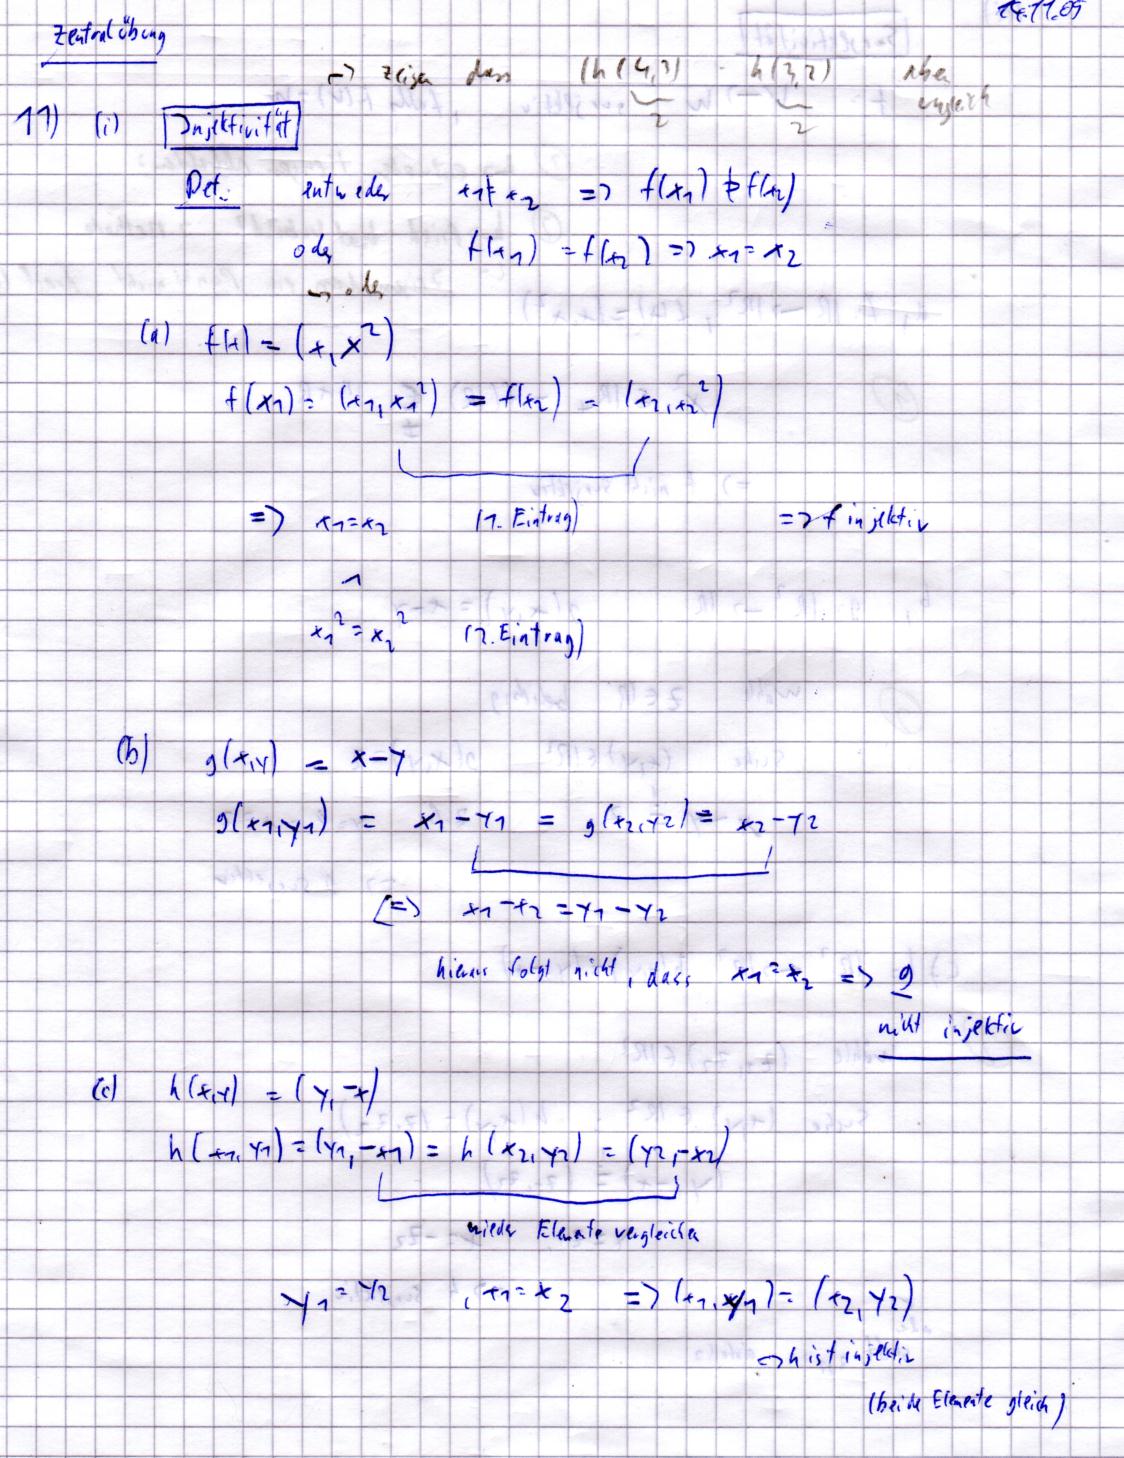 24.11.05
Zentralübung
→ zeigen dass (h(4,3) h(3,2) aber ungleich
2 2
11) (i) Injektivität
Def.: entweder x1 ≠ x2 => f(x1) ≠ f(x2)
oder f(x1) = f(x2) => x1 = x2
→ oder
(a) f(x) = (x, x²)
f(x1) = (x1, x1²) = f(x2) = (x2, x2²)
=> x1 = x2 (1. Eintrag) => f injektiv
∧
x1² = x2² (2. Eintrag)
(b) g(x,y) = x-y
g(x1,y1) = x1 - y1 = g(x2,y2) = x2 - y2
<=> x1 - x2 = y1 - y2
hieraus folgt nicht, dass x1 = x2 => g
nicht injektiv
(c) h(x,y) = (y, -x)
h(x1,y1) = (y1, -x1) = h(x2,y2) = (y2, -x2)
wieder Elemente vergleichen
y1 = y2 , x1 = x2 => (x1, y1) = (x2, y2)
→ h ist injektiv
(beide Elemente gleich)